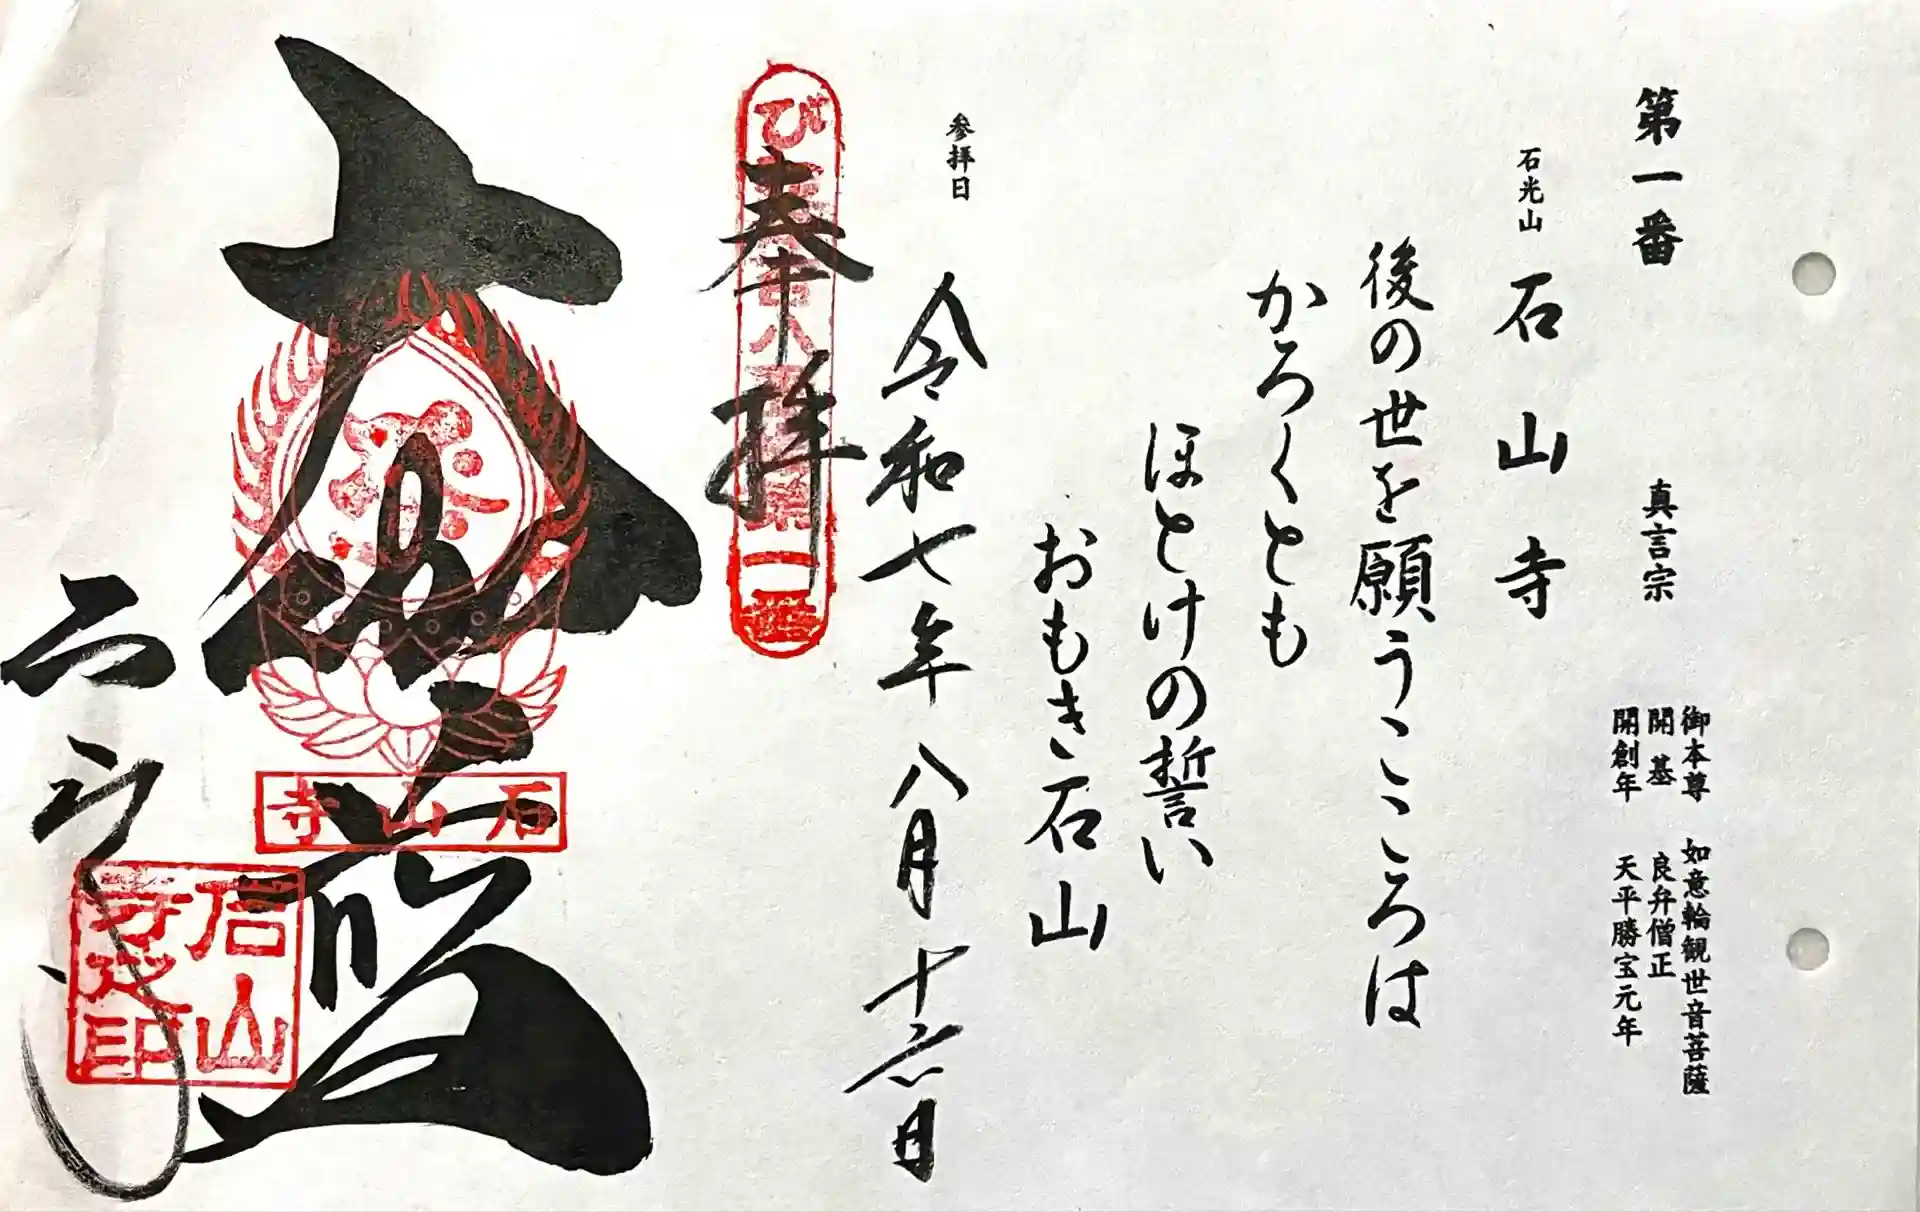 第一番 真言宗
御本尊 如意輪観世音菩薩
開基 良弁僧正
開創年 天平勝宝元年
石光山 石山寺
後の世を願うこころは
かろくとも
ほとけの誓い
おもき石山
参拝日
令和七年八月十六日
奉拝
び
八
番
大伽藍
石山寺
石山
寺之印